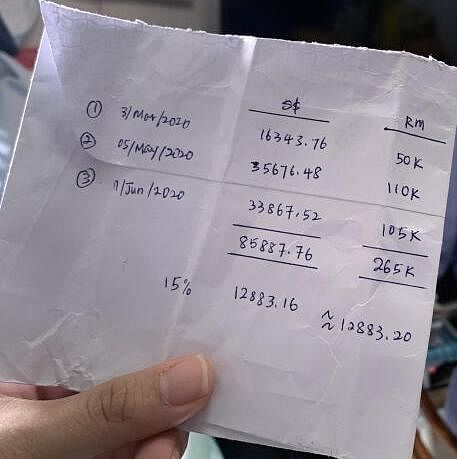 S$ RM
① 3/Mar/2020 16343.76 50K
② 05/May/2020 35676.48 110K
③ 11/Jun/2020 33867.52 105K
85887.76 265K
15% 12883.16 ≈ 12883.20